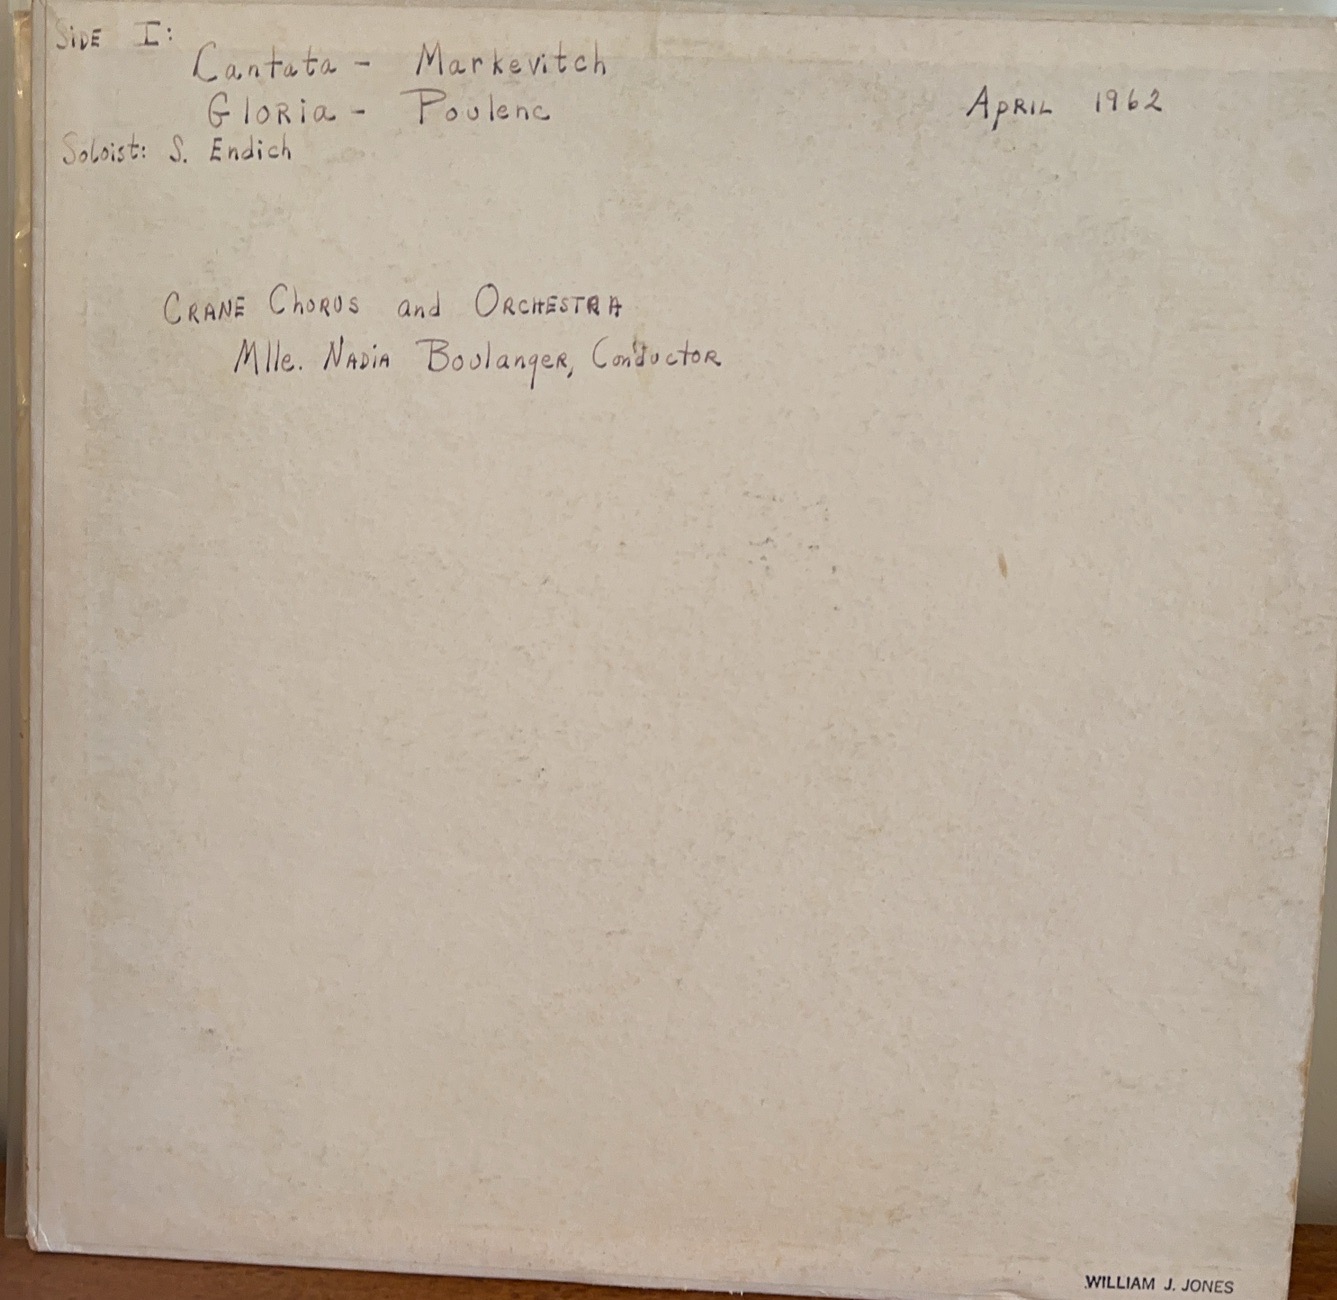 Side I:
Cantata - Markevitch
Gloria - Poulenc
April 1962
Soloist: S. Endich
Crane Chorus and Orchestra
Mlle. Nadia Boulanger, Conductor
WILLIAM J. JONES